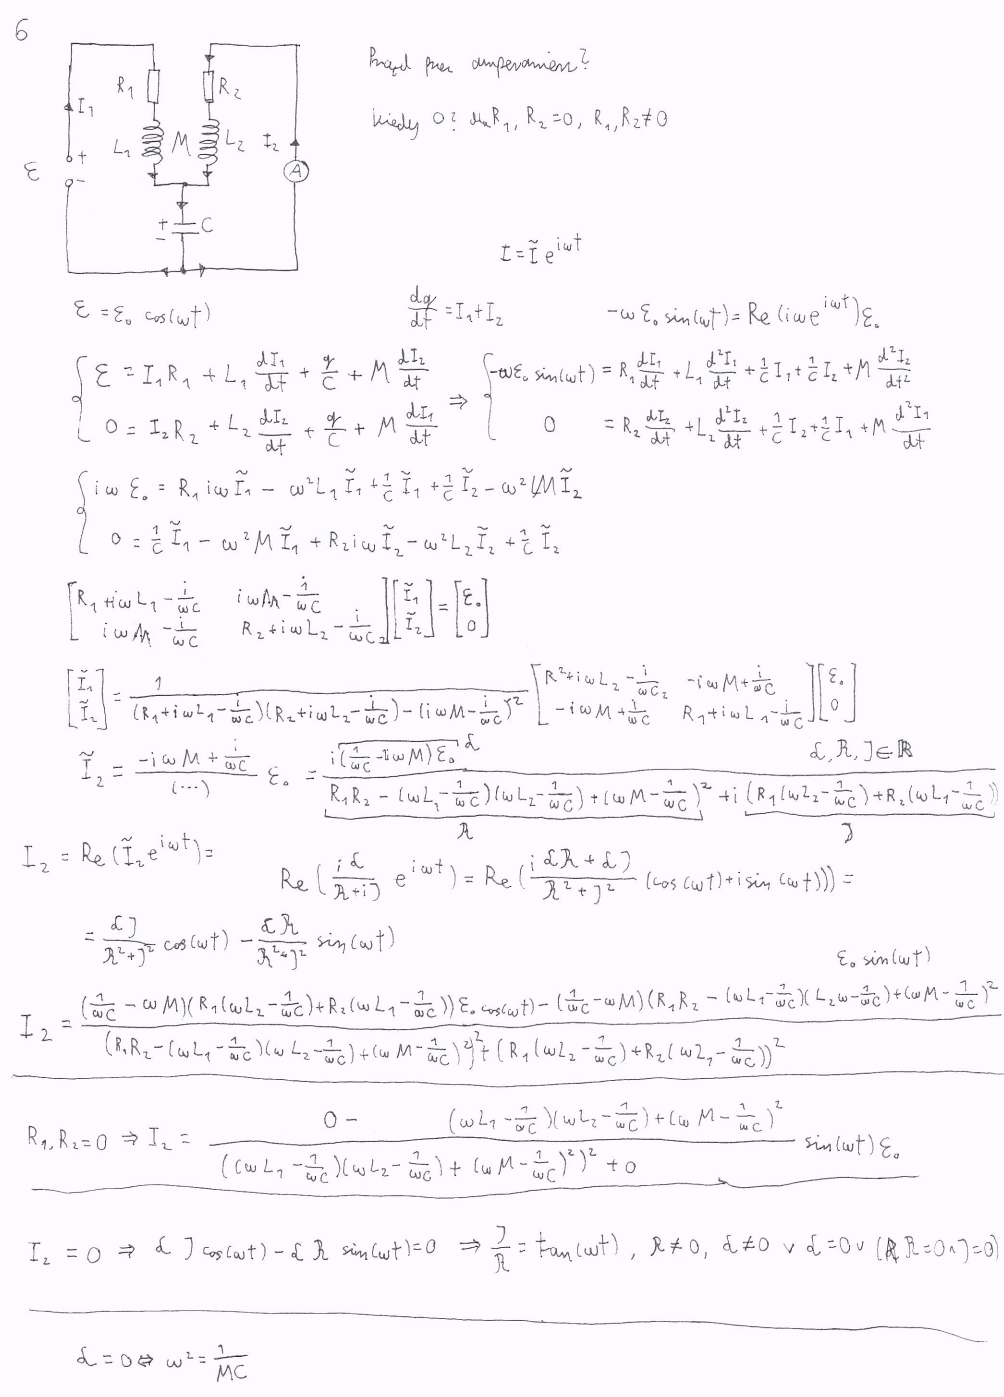 6
Prąd przez amperomierz?
R₁ R₂
I₁ kiedy 0? dla R₁, R₂=0, R₁,R₂≠0
L₁ M L₂ I₂
+ A
ε −
+ C
−
I = Ĩ e^{iωt}
ε = ε₀ cos(ωt) dq/dt = I₁+I₂ -ωε₀ sin(ωt) = Re(iωe^{iωt})ε₀
{ ε = I₁R₁ + L₁ dI₁/dt + q/C + M dI₂/dt ⇒ { -ωε₀ sin(ωt) = R₁ dI₁/dt + L₁ d²I₁/dt + 1/C I₁ + 1/C I₂ + M d²I₂/dt²
0 = I₂R₂ + L₂ dI₂/dt + q/C + M dI₁/dt 0 = R₂ dI₂/dt + L₂ d²I₂/dt + 1/C I₂ + 1/C I₁ + M d²I₁/dt
{ iωε₀ = R₁iωĨ₁ − ω²L₁Ĩ₁ + 1/C Ĩ₁ + 1/C Ĩ₂ − ω²MĨ₂
0 = 1/C Ĩ₁ − ω²MĨ₁ + R₂iωĨ₂ − ω²L₂Ĩ₂ + 1/C Ĩ₂
[R₁+iωL₁−i/ωC iωM−i/ωC] [Ĩ₁] = [ε₀]
[iωM−i/ωC R₂+iωL₂−i/ωC₂] [Ĩ₂] [0]
[Ĩ₁] = 1/((R₁+iωL₁−i/ωC)(R₂+iωL₂−i/ωC)−(iωM−i/ωC)²) [R²+iωL₂−i/ωC₂ −iωM+i/ωC] [ε₀]
[Ĩ₂] [−iωM+i/ωC R₁+iωL₁−i/ωC] [0]
Ĩ₂ = (−iωM+i/ωC)/(...) ε₀ = i(1/ωC−ωM)ε₀ / (R₁R₂−(ωL₁−1/ωC)(ωL₂−1/ωC)+(ωM−1/ωC)²+i(R₁(ωL₂−1/ωC)+R₂(ωL₁−1/ωC))) L, R, J∈ℝ
R J
I₂ = Re(Ĩ₂e^{iωt}) =
Re(iL/(R+iJ) e^{iωt}) = Re((iLR+LJ)/(R²+J²) (cos(ωt)+isin(ωt))) =
= LJ/(R²+J²) cos(ωt) − LR/(R²+J²) sin(ωt)
ε₀ sin(ωt)
I₂ = ((1/ωC−ωM)(R₁(ωL₂−1/ωC)+R₂(ωL₁−1/ωC))ε₀cos(ωt)−(1/ωC−ωM)(R₁R₂−(ωL₁−1/ωC)(L₂ω−1/ωC)+(ωM−1/ωC)²) / ((R₁R₂−(ωL₁−1/ωC)(ωL₂−1/ωC)+(ωM−1/ωC)²)²+(R₁(ωL₂−1/ωC)+R₂(ωL₁−1/ωC))²)
R₁,R₂=0 ⇒ I₂ = (0− (ωL₁−1/ωC)(ωL₂−1/ωC)+(ωM−1/ωC)²) / (((ωL₁−1/ωC)(ωL₂−1/ωC)+(ωM−1/ωC)²)²+0) sin(ωt)ε₀
I₂ = 0 ⇒ LJcos(ωt)−LR sin(ωt)=0 ⇒ J/R = tan(ωt), R≠0, L≠0 ∨ L=0 ∨ (R=0∧J=0)
L=0 ⇔ ω²=1/MC